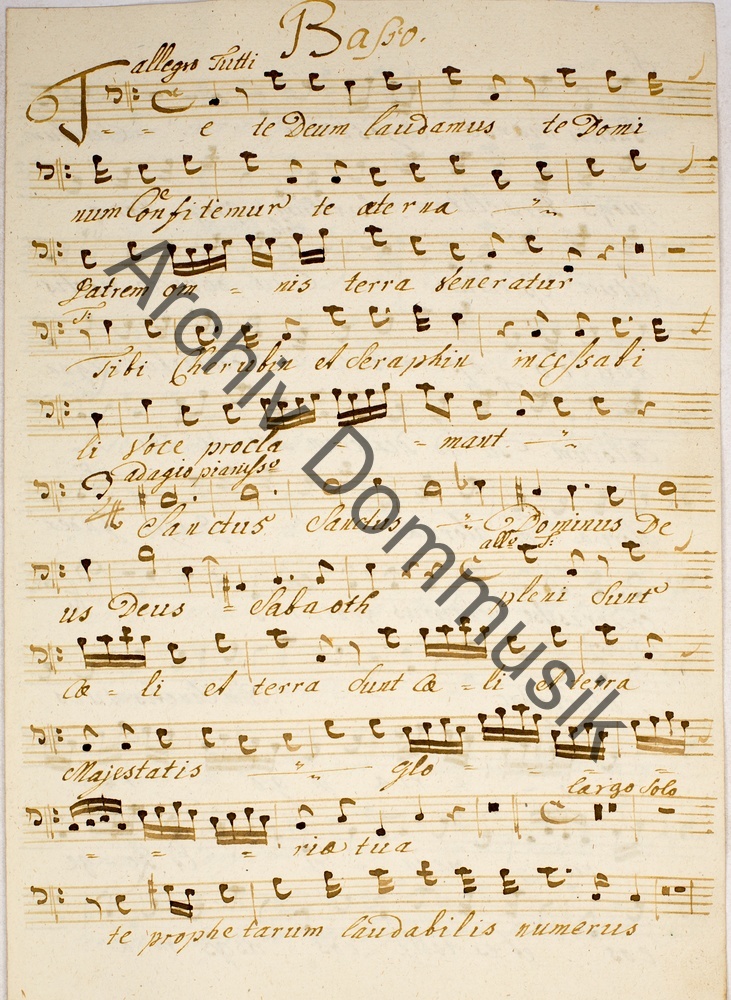 Basso.
allegro Tutti
T - - e te Deum laudamus te Domi
num Confitemur te æterna
Patrem om = nis terra Veneratur
Tibi Cherubin et Seraphin incessabi
li Voce procla - - = mant
adagio pianisso
Sanctus Sanctus Dominus De
allo
us Deus = Sabaoth pleni Sunt
Cæ = li et terra Sunt Cæ = li et terra
Majestatis glo = = =
largo Solo
= = = riæ tua
te prophetarum laudabilis numerus
Archiv Dommusik